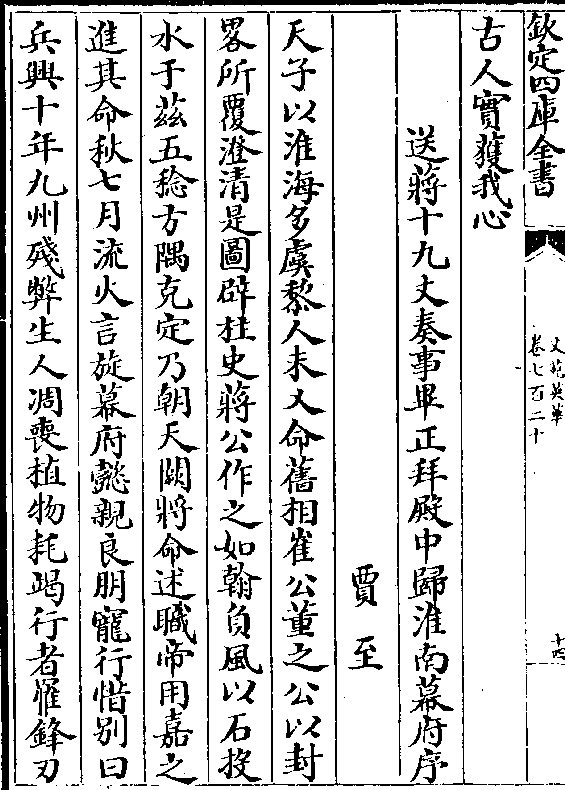 欽定四庫全書
文苑英華
卷七百二十
十四
古人實獲我心
送蔣十九丈奏事畢正拜殿中歸淮南幕府序
賈至
天子以淮海多虞黎人未乂命舊相崔公董之公以封
畧所覆澄清是圖辟柱史蔣公作之如翰負風以石投
水于茲五稔方隅克定乃朝天闕將命述職帝用嘉之
進其命秋七月流火言旋幕府懿親良朋寵行惜别曰
兵興十年九州殘弊生人凋喪植物耗竭行者罹鋒刃